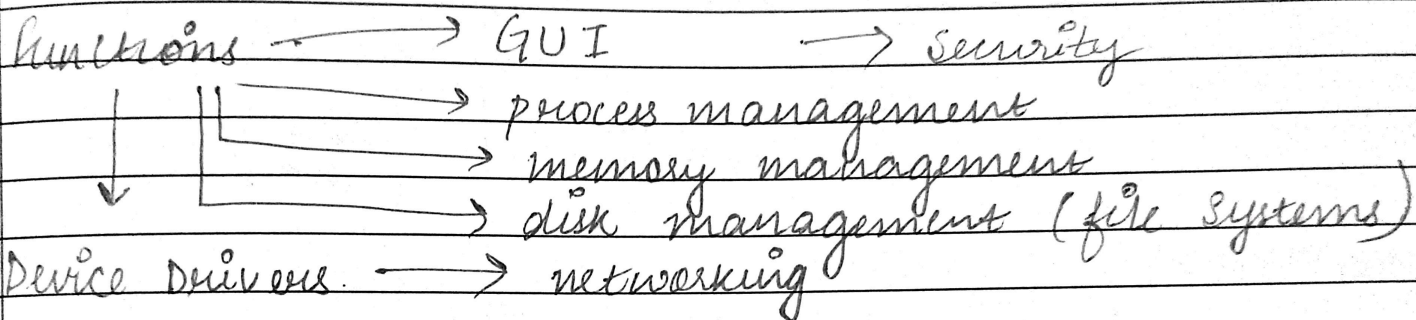 functions → GUI → Security
→ process management
→ memory management
→ disk management (file systems)
Device Drivers. → networking